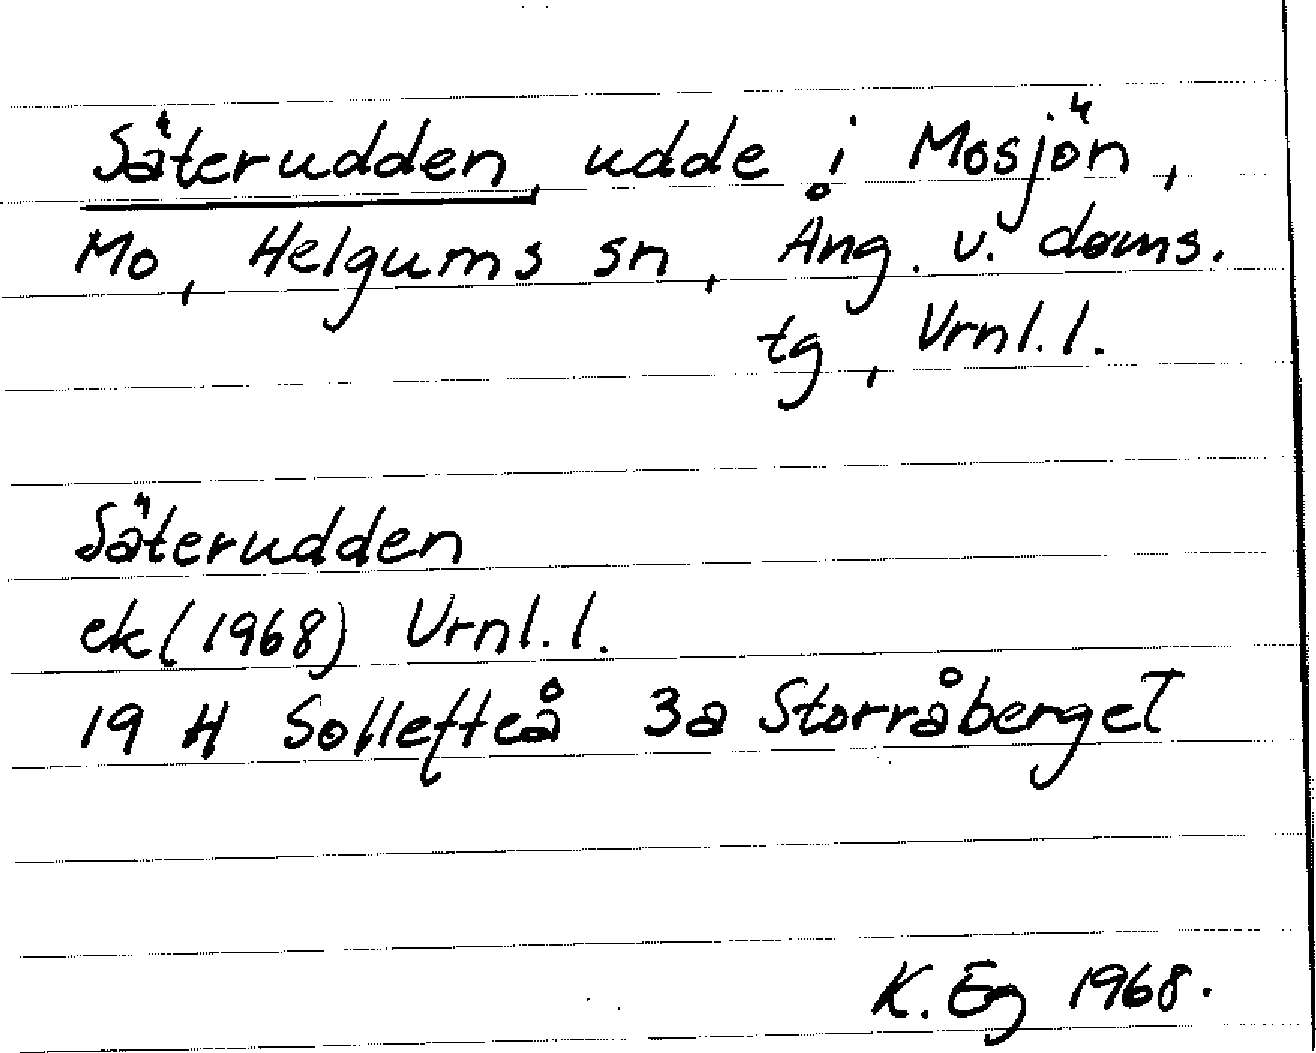 Säterudden, udde i Mosjön,
Mo, Helgums sn, Ång. v. doms.
tg, Vrnl.l.
Säterudden
ek (1968) Vrnl.l.
19 H Sollefteå 3a Storråberget
K. Eg 1968.